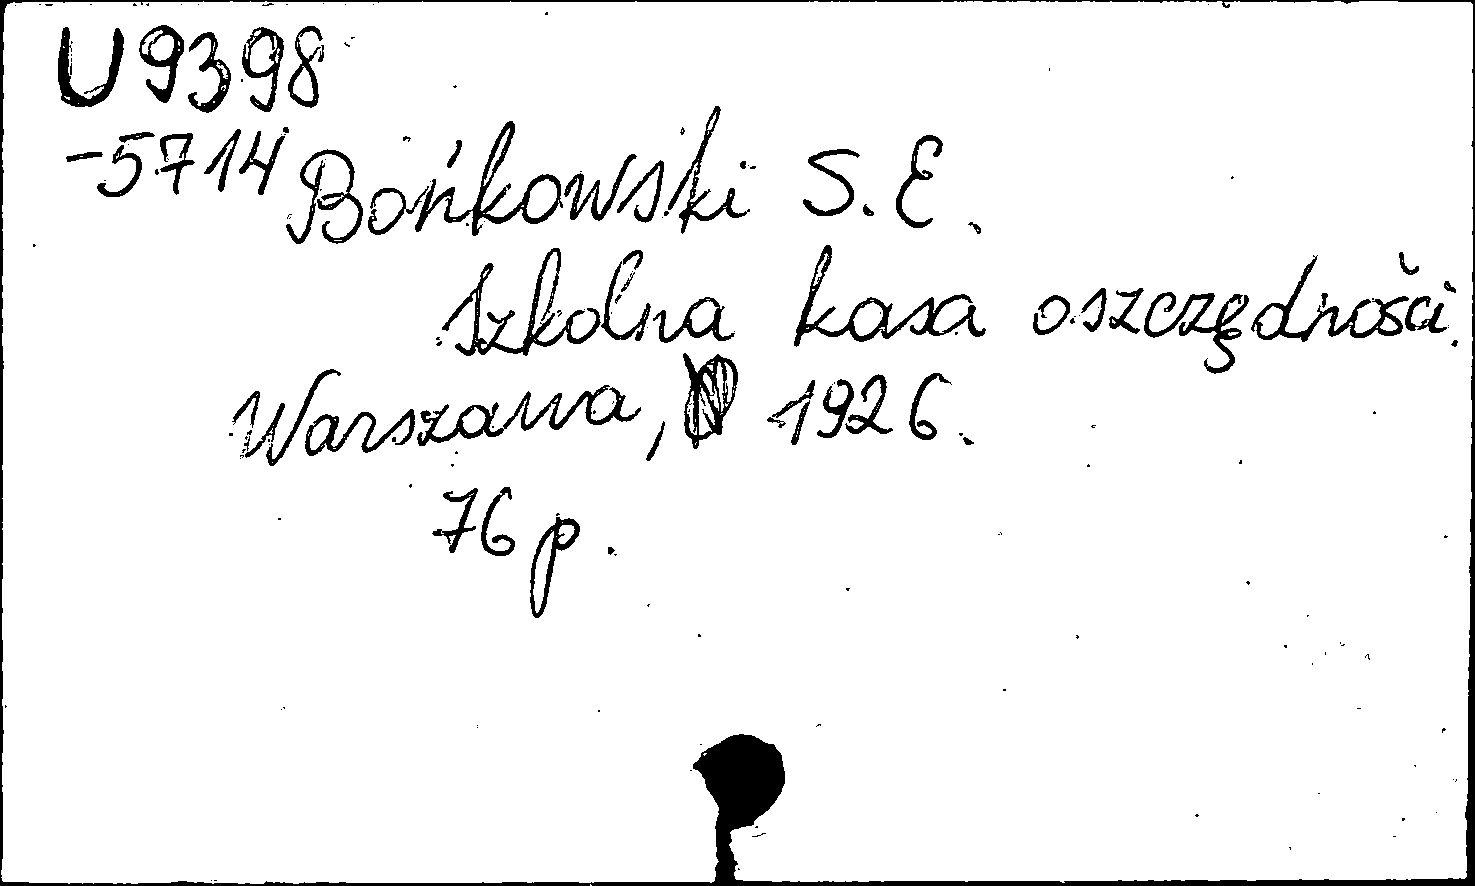 U9398
-5714
Bońkowski S. E.
Szkolna kasa oszczędności.
Warszawa, 1926.
76 p.